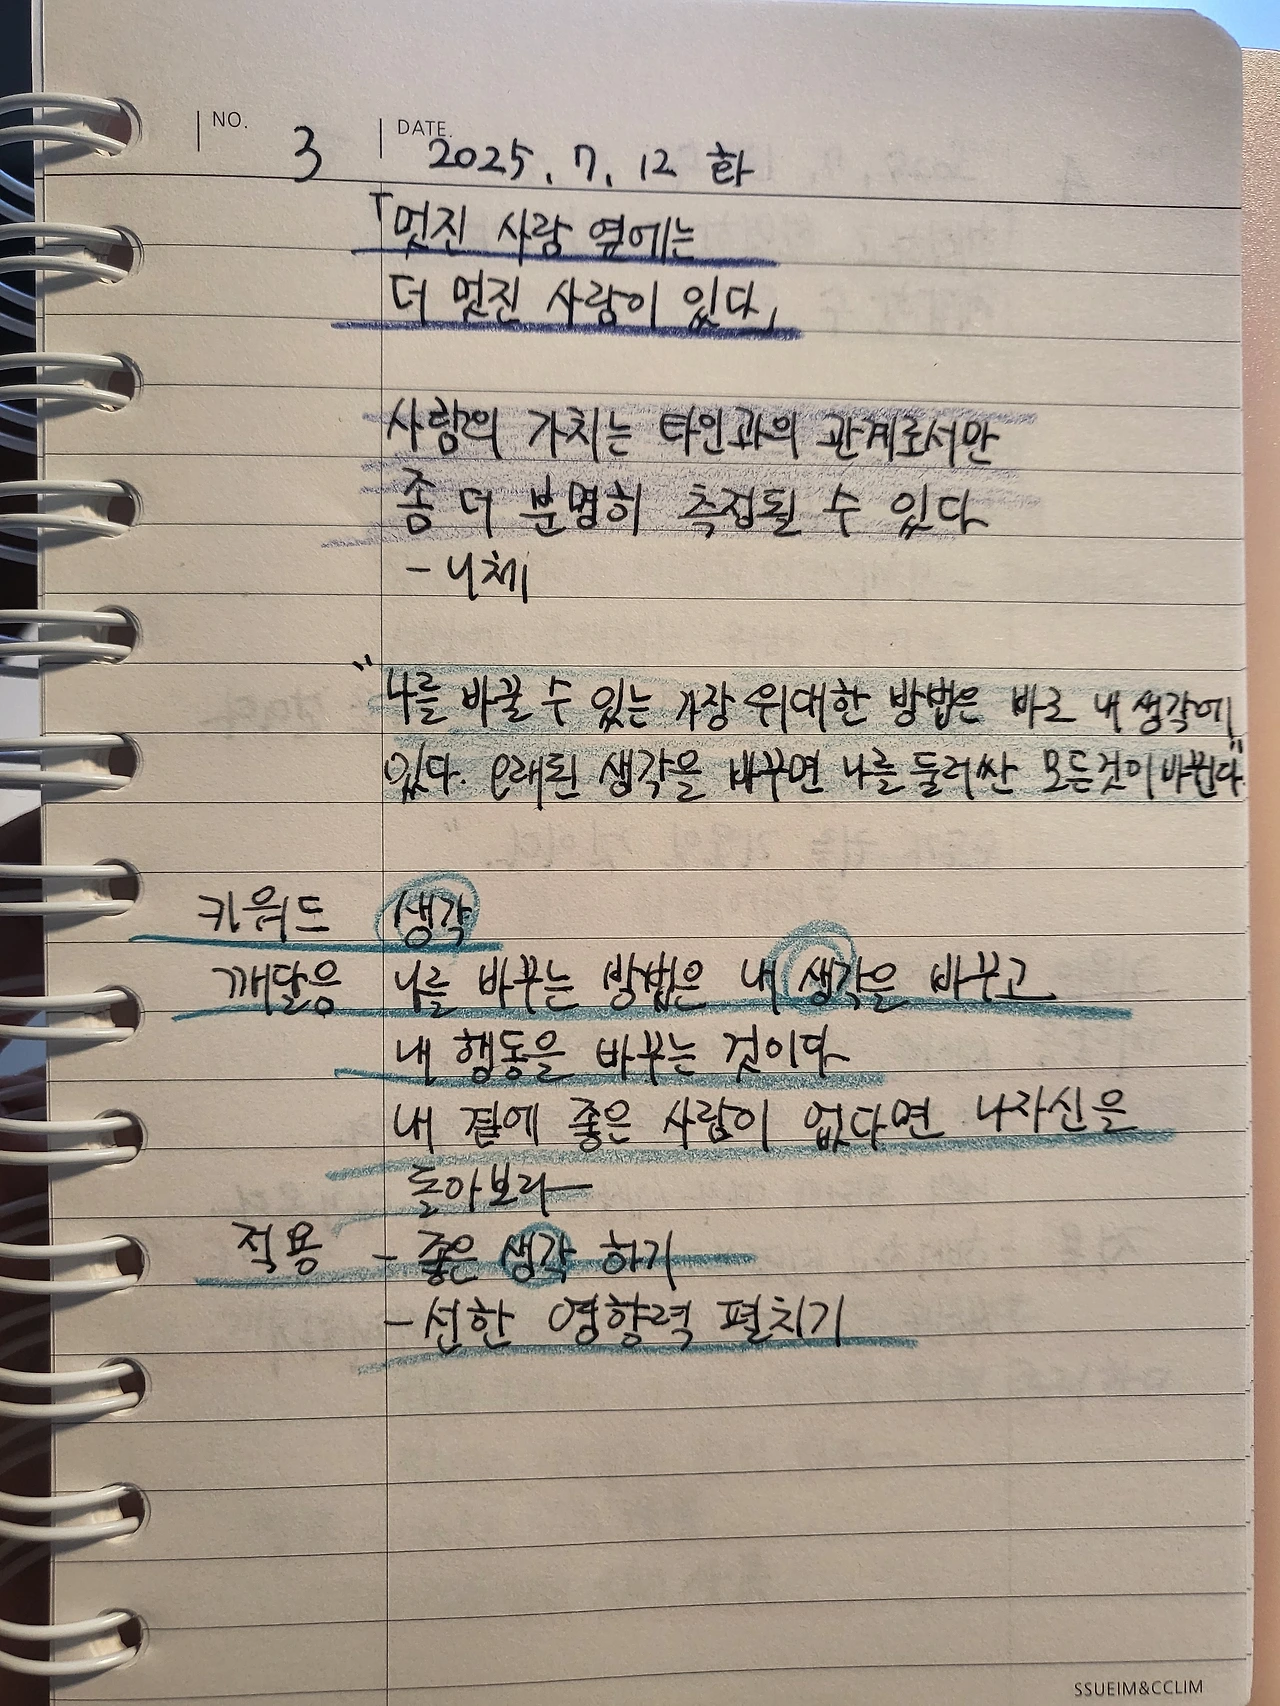 NO. 3 DATE. 2025. 7. 12 화
「멋진 사람 옆에는
더 멋진 사람이 있다」
사람의 가치는 타인과의 관계로서만
좀 더 분명히 측정될 수 있다
- 니체
"나를 바꿀 수 있는 가장 위대한 방법은 바로 내 생각에
있다. 오래된 생각을 바꾸면 나를 둘러싼 모든것이 바뀐다"
키워드 생각
깨달음 나를 바꾸는 방법은 내 생각을 바꾸고
내 행동을 바꾸는 것이다
내 곁에 좋은 사람이 없다면 나자신을
돌아보라
적용 - 좋은 생각 하기
- 선한 영향력 펼치기
SSUEIM&CCLIM